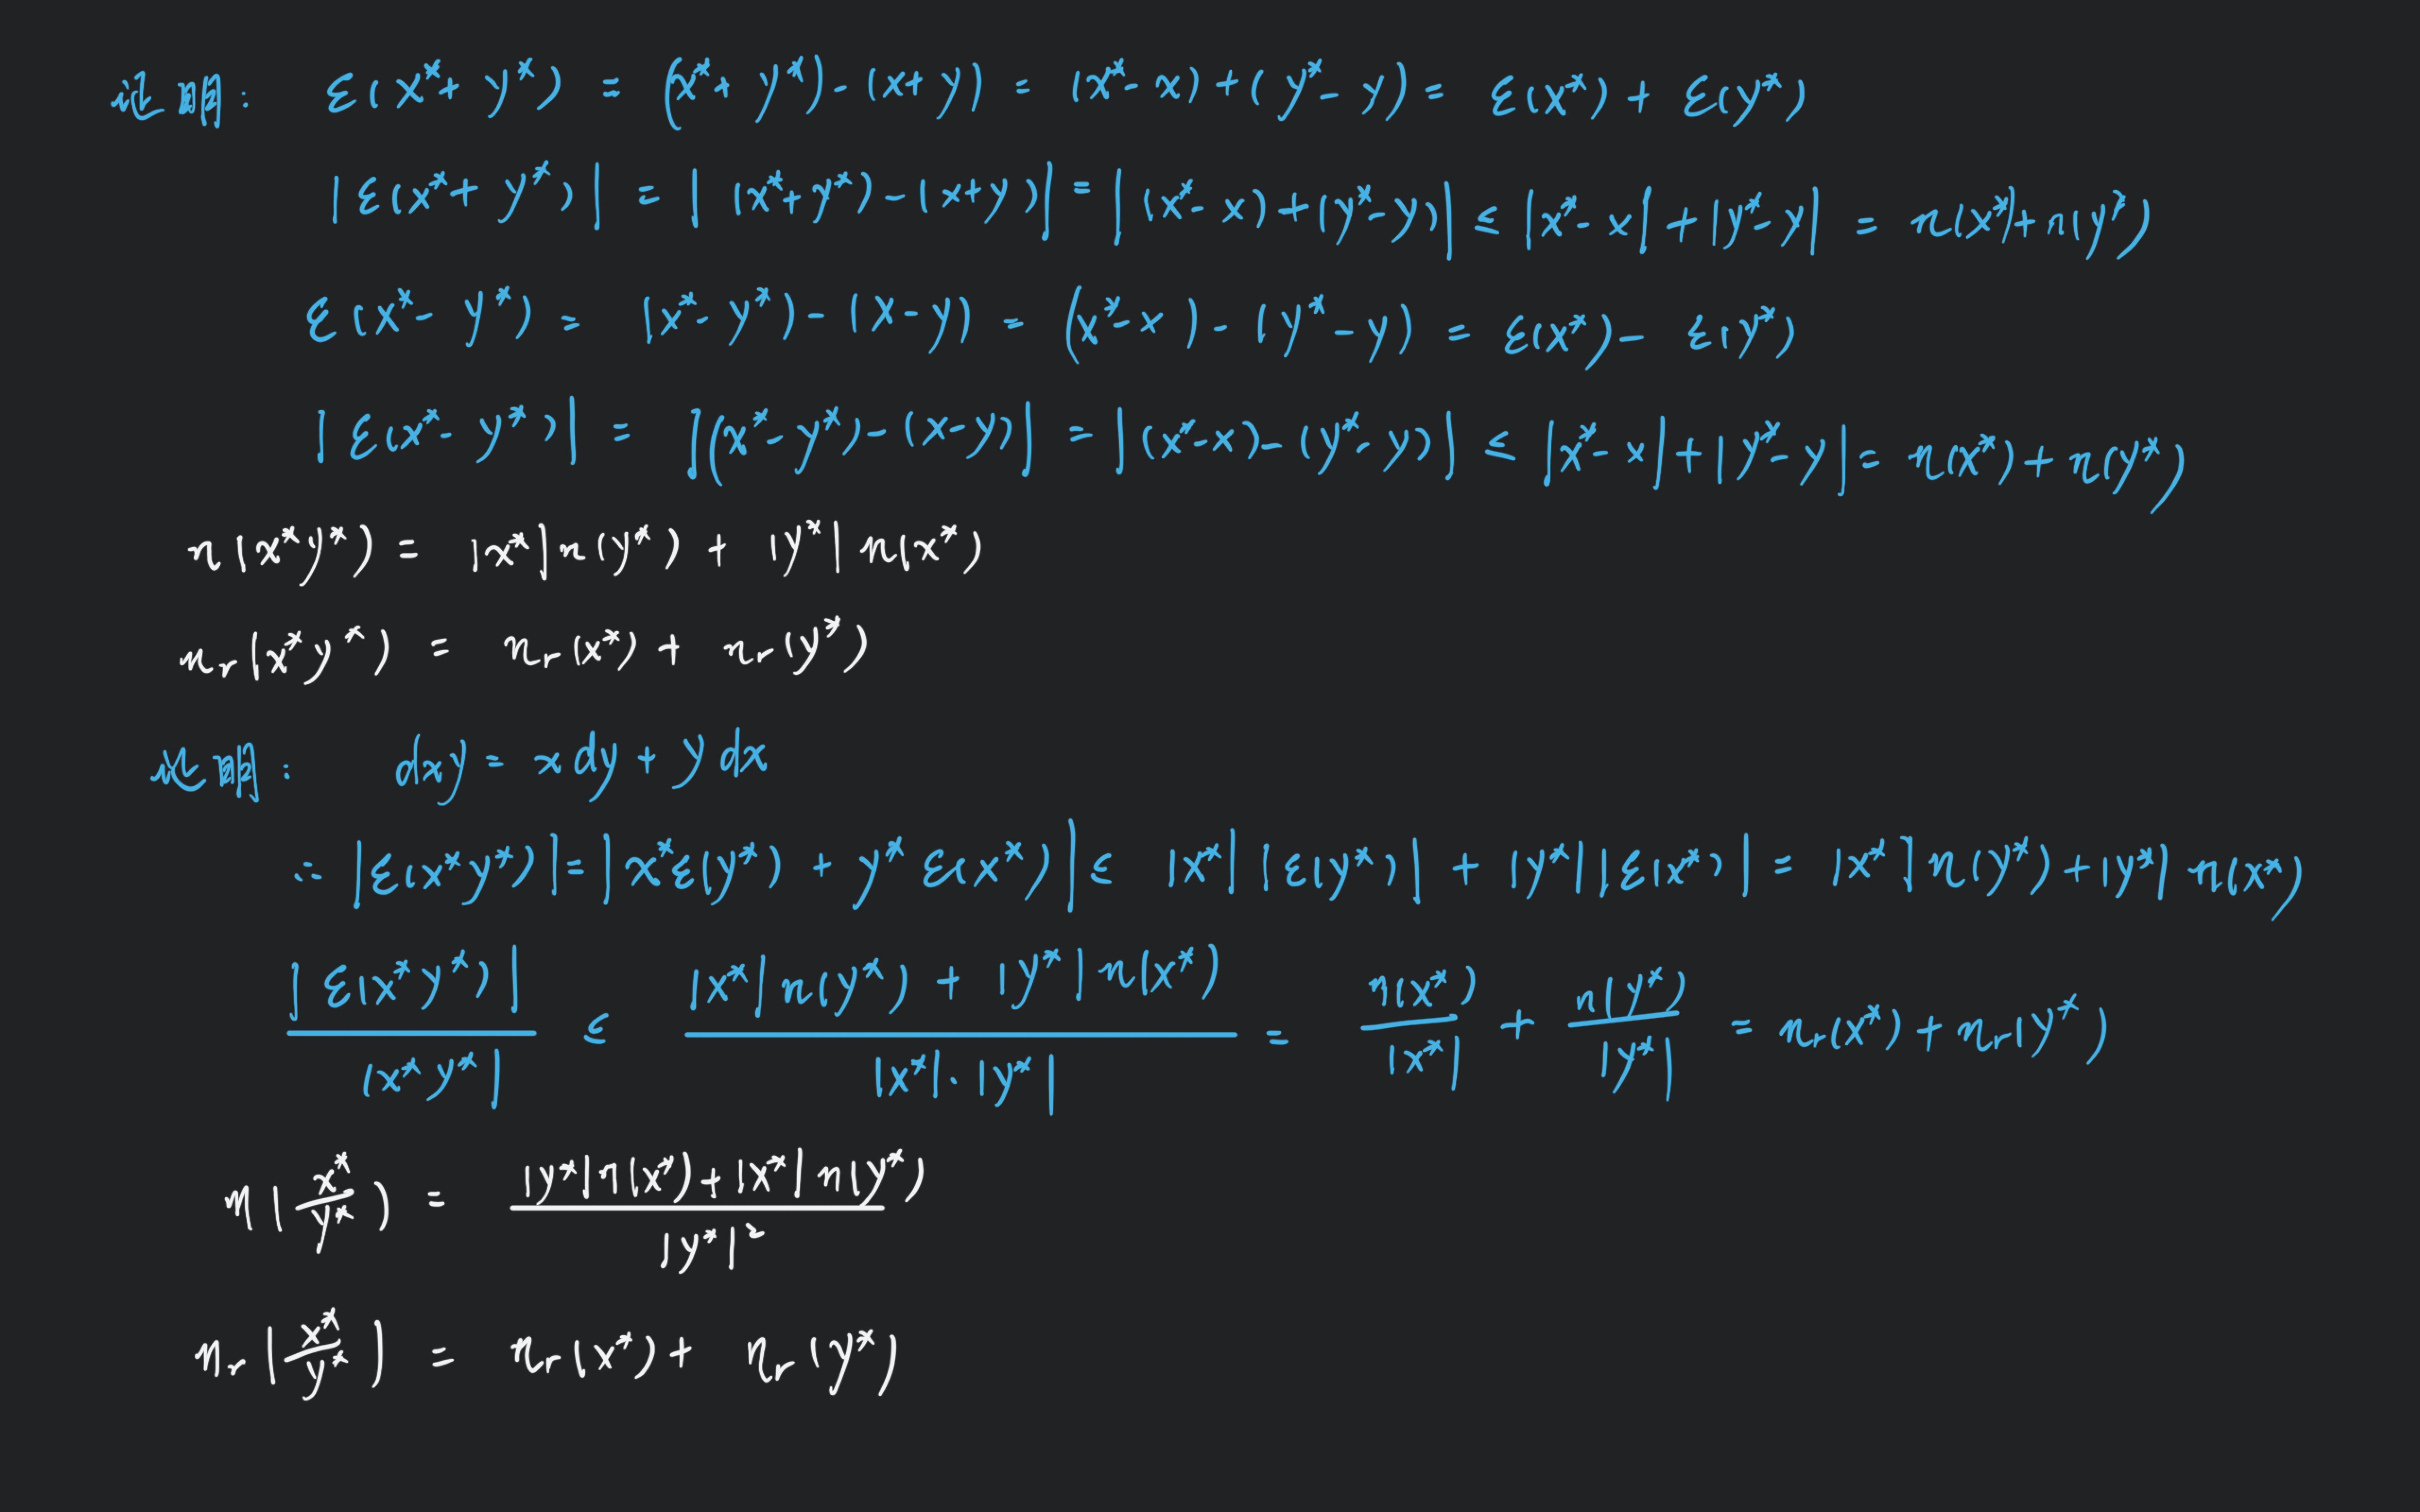 证明: ε(x*+y*) = (x*+y*)-(x+y) = (x*-x)+(y*-y) = ε(x*)+ε(y*)
|ε(x*+y*)| = |(x*+y*)-(x+y)| = |(x*-x)+(y*-y)| ≤ |x*-x|+|y*-y| = η(x*)+η(y*)
ε(x*-y*) = (x*-y*)-(x-y) = (x*-x)-(y*-y) = ε(x*)-ε(y*)
|ε(x*-y*)| = |(x*-y*)-(x-y)| = |(x*-x)-(y*-y)| ≤ |x*-x|+|y*-y| = η(x*)+η(y*)
η(x*y*) = |x*|η(y*) + |y*|η(x*)
ηr(x*y*) = ηr(x*) + ηr(y*)
证明: dxy = xdy + ydx
∴ |ε(x*y*)| = |x*ε(y*) + y*ε(x*)| ≤ |x*||ε(y*)| + |y*||ε(x*)| = |x*|η(y*) + |y*|η(x*)
|ε(x*y*)| / |x*y*| ≤ (|x*|η(y*) + |y*|η(x*)) / (|x*|·|y*|) = η(x*)/|x*| + η(y*)/|y*| = ηr(x*) + ηr(y*)
η(x*/y*) = (|y*|η(x*) + |x*|η(y*)) / |y*|²
ηr(x*/y*) = ηr(x*) + ηr(y*)